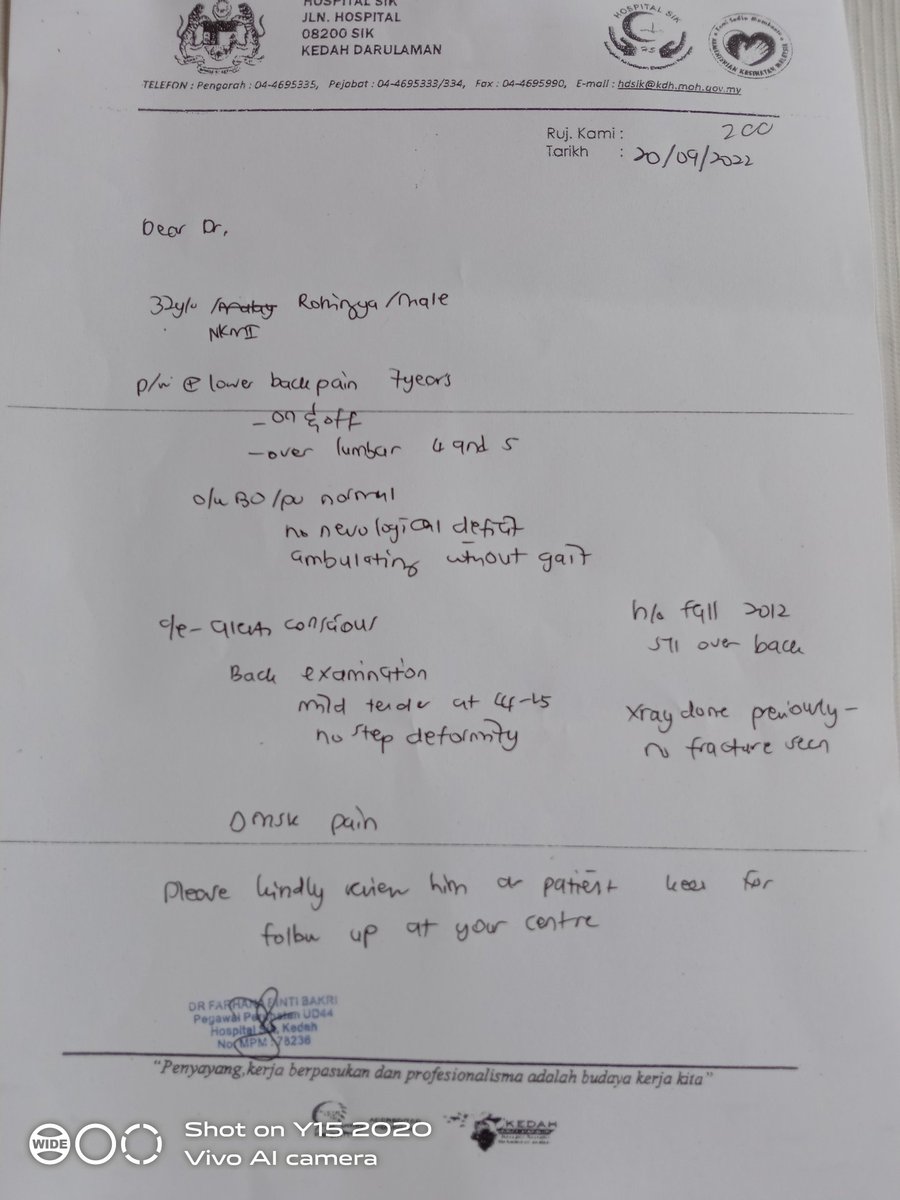 HOSPITAL SIK
JLN. HOSPITAL
08200 SIK
KEDAH DARULAMAN
HOSPITAL SIK
KEMENTERIAN KESIHATAN MALAYSIA
TELEFON : Pengarah : 04-4695335, Pejabat : 04-4695333/334, Fax : 04-4695990, E-mail : hdsik@kdh.moh.gov.my
Ruj. Kami : 200
Tarikh : 20/09/2022
Dear Dr,
32y/o / Rohingya/male
NKMI
p/w lower back pain 7years
- on & off
- over lumbar 4 and 5
BO/pu normal
no neurological deficit
ambulating without gait
o/e - alert, conscious
Back examination
mild tender at L4-L5
no step deformity
h/o fall 2012
STI over back
Xray done previously -
no fracture seen
msk pain
Please kindly review him as patient keen for
follow up at your centre
DR FARHANA BINTI BAKRI
Pegawai Perubatan UD44
Hospital Sik, Kedah
No. MPM : 78236
"Penyayang,kerja berpasukan dan profesionalisma adalah budaya kerja kita"
KEDAH
WIDE
Shot on Y15 2020
Vivo AI camera